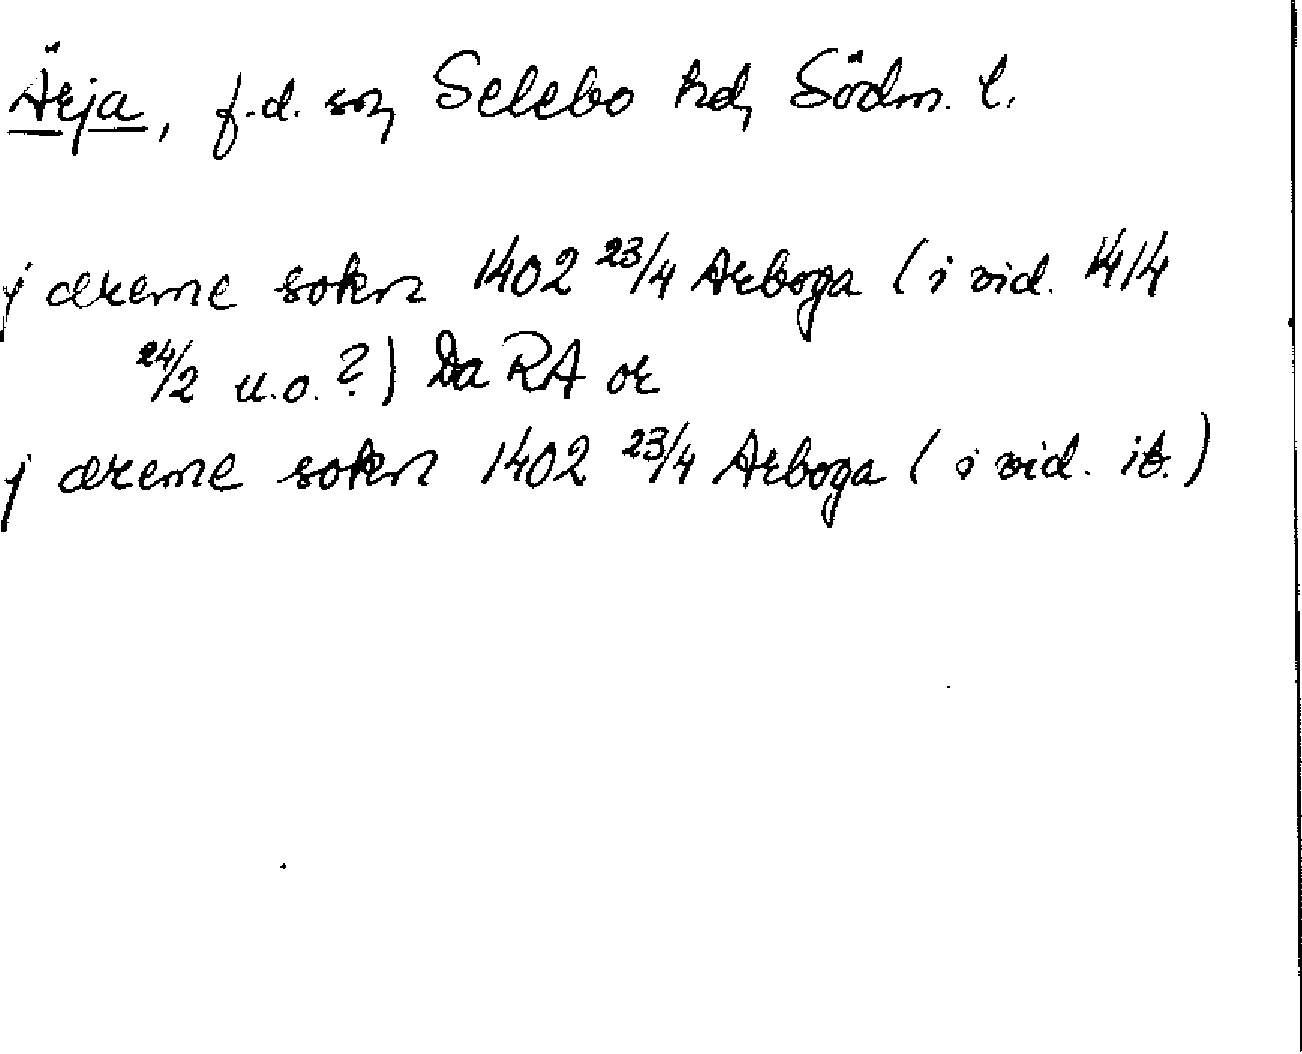 Ärja, f.d. sn, Selebo hd, Södm. l.
j ærerne sokn 1402 23/4 Arboga (i vid. 1414
24/2 u.o.?) Da RA or
j ærerne sokn 1402 23/4 Arboga (i vid. ib.)